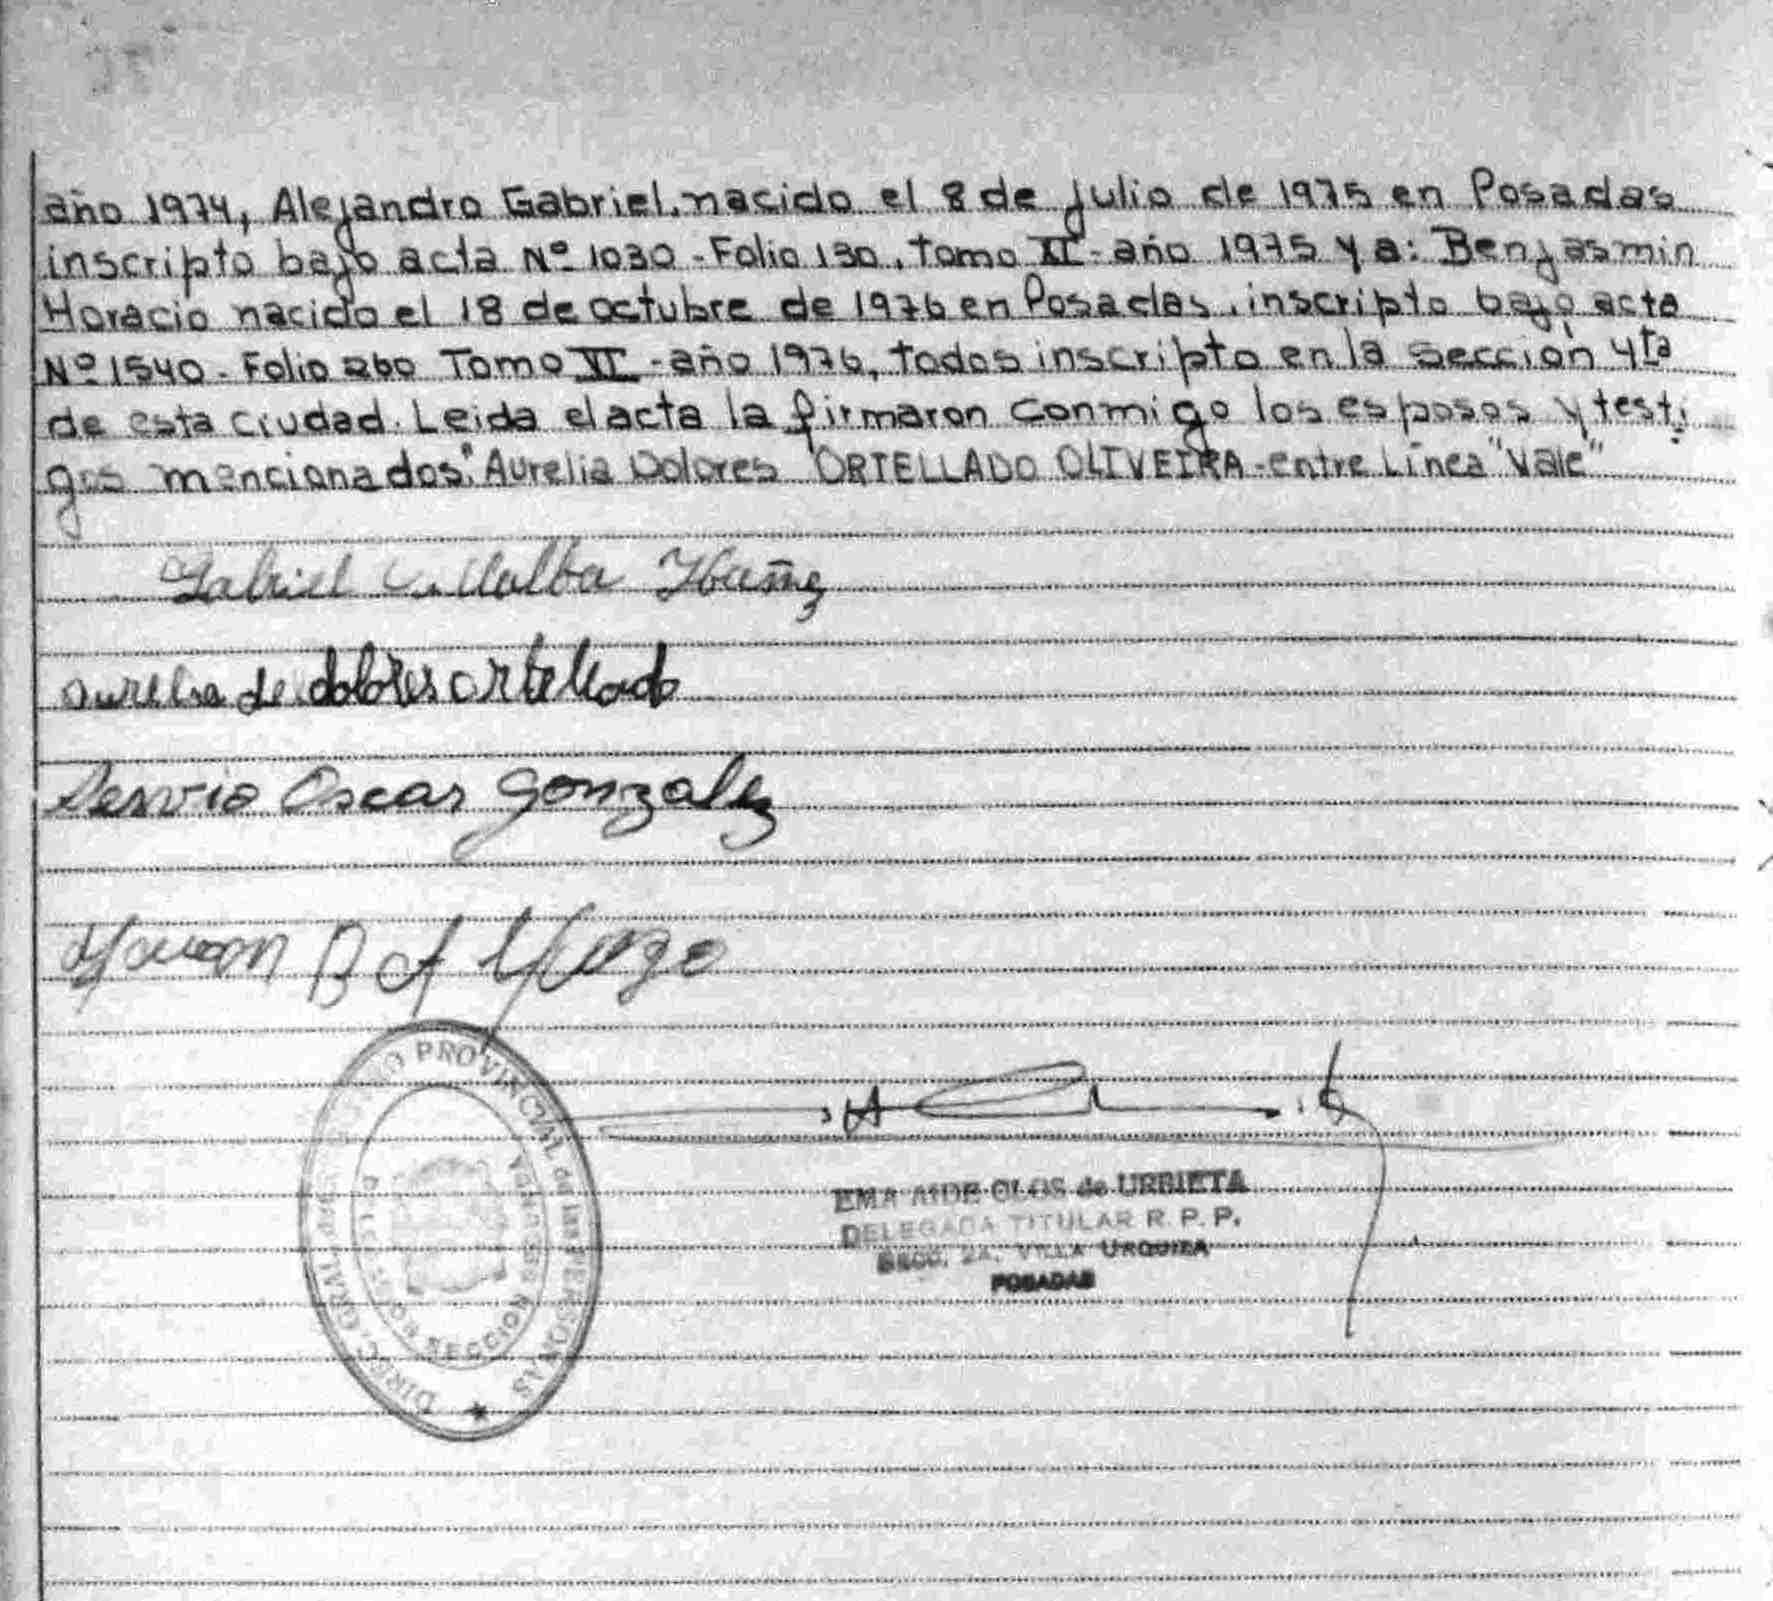 año 1974, Alejandro Gabriel, nacido el 8 de Julio de 1975 en Posadas
inscripto bajo acta Nº 1030 - Folio 130, Tomo II - año 1975 y a: Benjasmin
Horacio nacido el 18 de octubre de 1976 en Posadas, inscripto bajo acta
Nº 1540 - Folio 260 Tomo VI - año 1976, todos inscripto en la sección 4ta
de esta ciudad. Leida el acta la firmaron conmigo los esposos y testi
gos mencionados." Aurelia Dolores "ORTELLADO OLIVEIRA - entre Línea "Vale"
Gabriel Villalba Ibañez
aurelia de dolores ortellado
Servio Oscar Gonzalez
DIREC. GRAL. PROVINCIAL de las PERSONAS
SECCION
EMA AIDE OLOS de URBIETA
DELEGADA TITULAR R. P. P.
SECC. 2A. VILLA URQUIZA
POSADAS